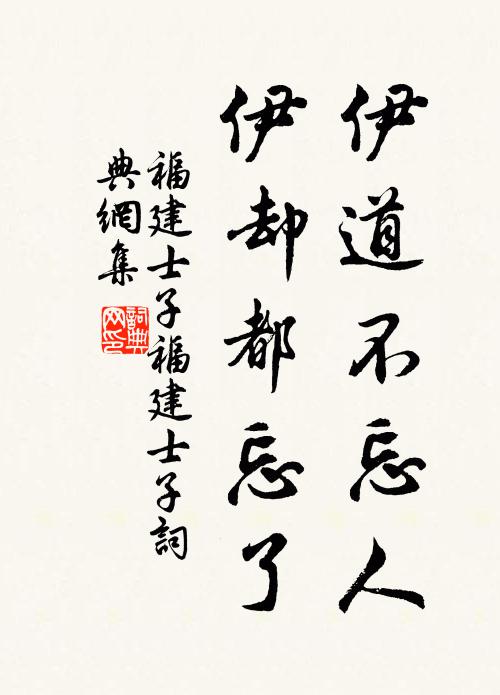 伊道不忘人
伊却都忘了
福建士子福建士子詞
典網集
詞典网印